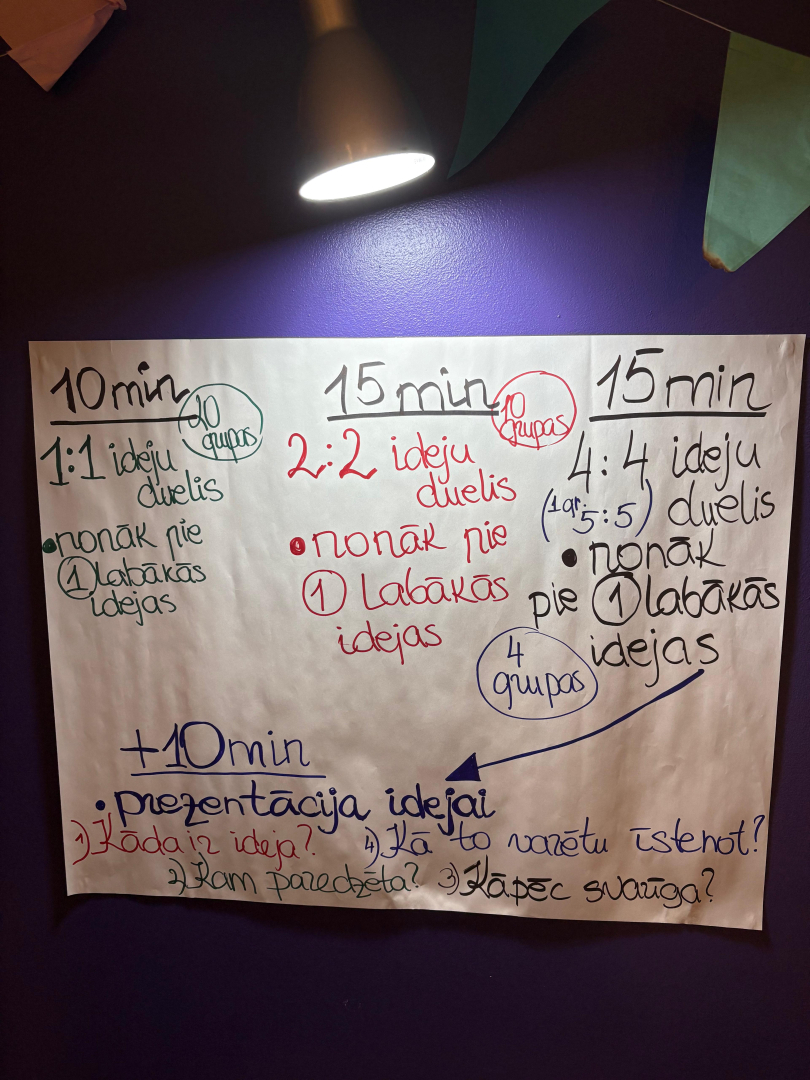 10min
20
grupas
1:1 ideju
duelis
•nonāk pie
1 labākās
idejas
15min
10
grupas
2:2 ideju
duelis
•nonāk pie
1 Labākās
idejas
15min
4:4 ideju
(1 gr. 5:5) duelis
•nonāk
pie 1 labākās
idejas
4
grupas
+10min
•prezentācija idejai
1) Kāda ir ideja?
2) Kam paredzēta?
3) Kāpēc svarīga?
4) Kā to varētu īstenot?